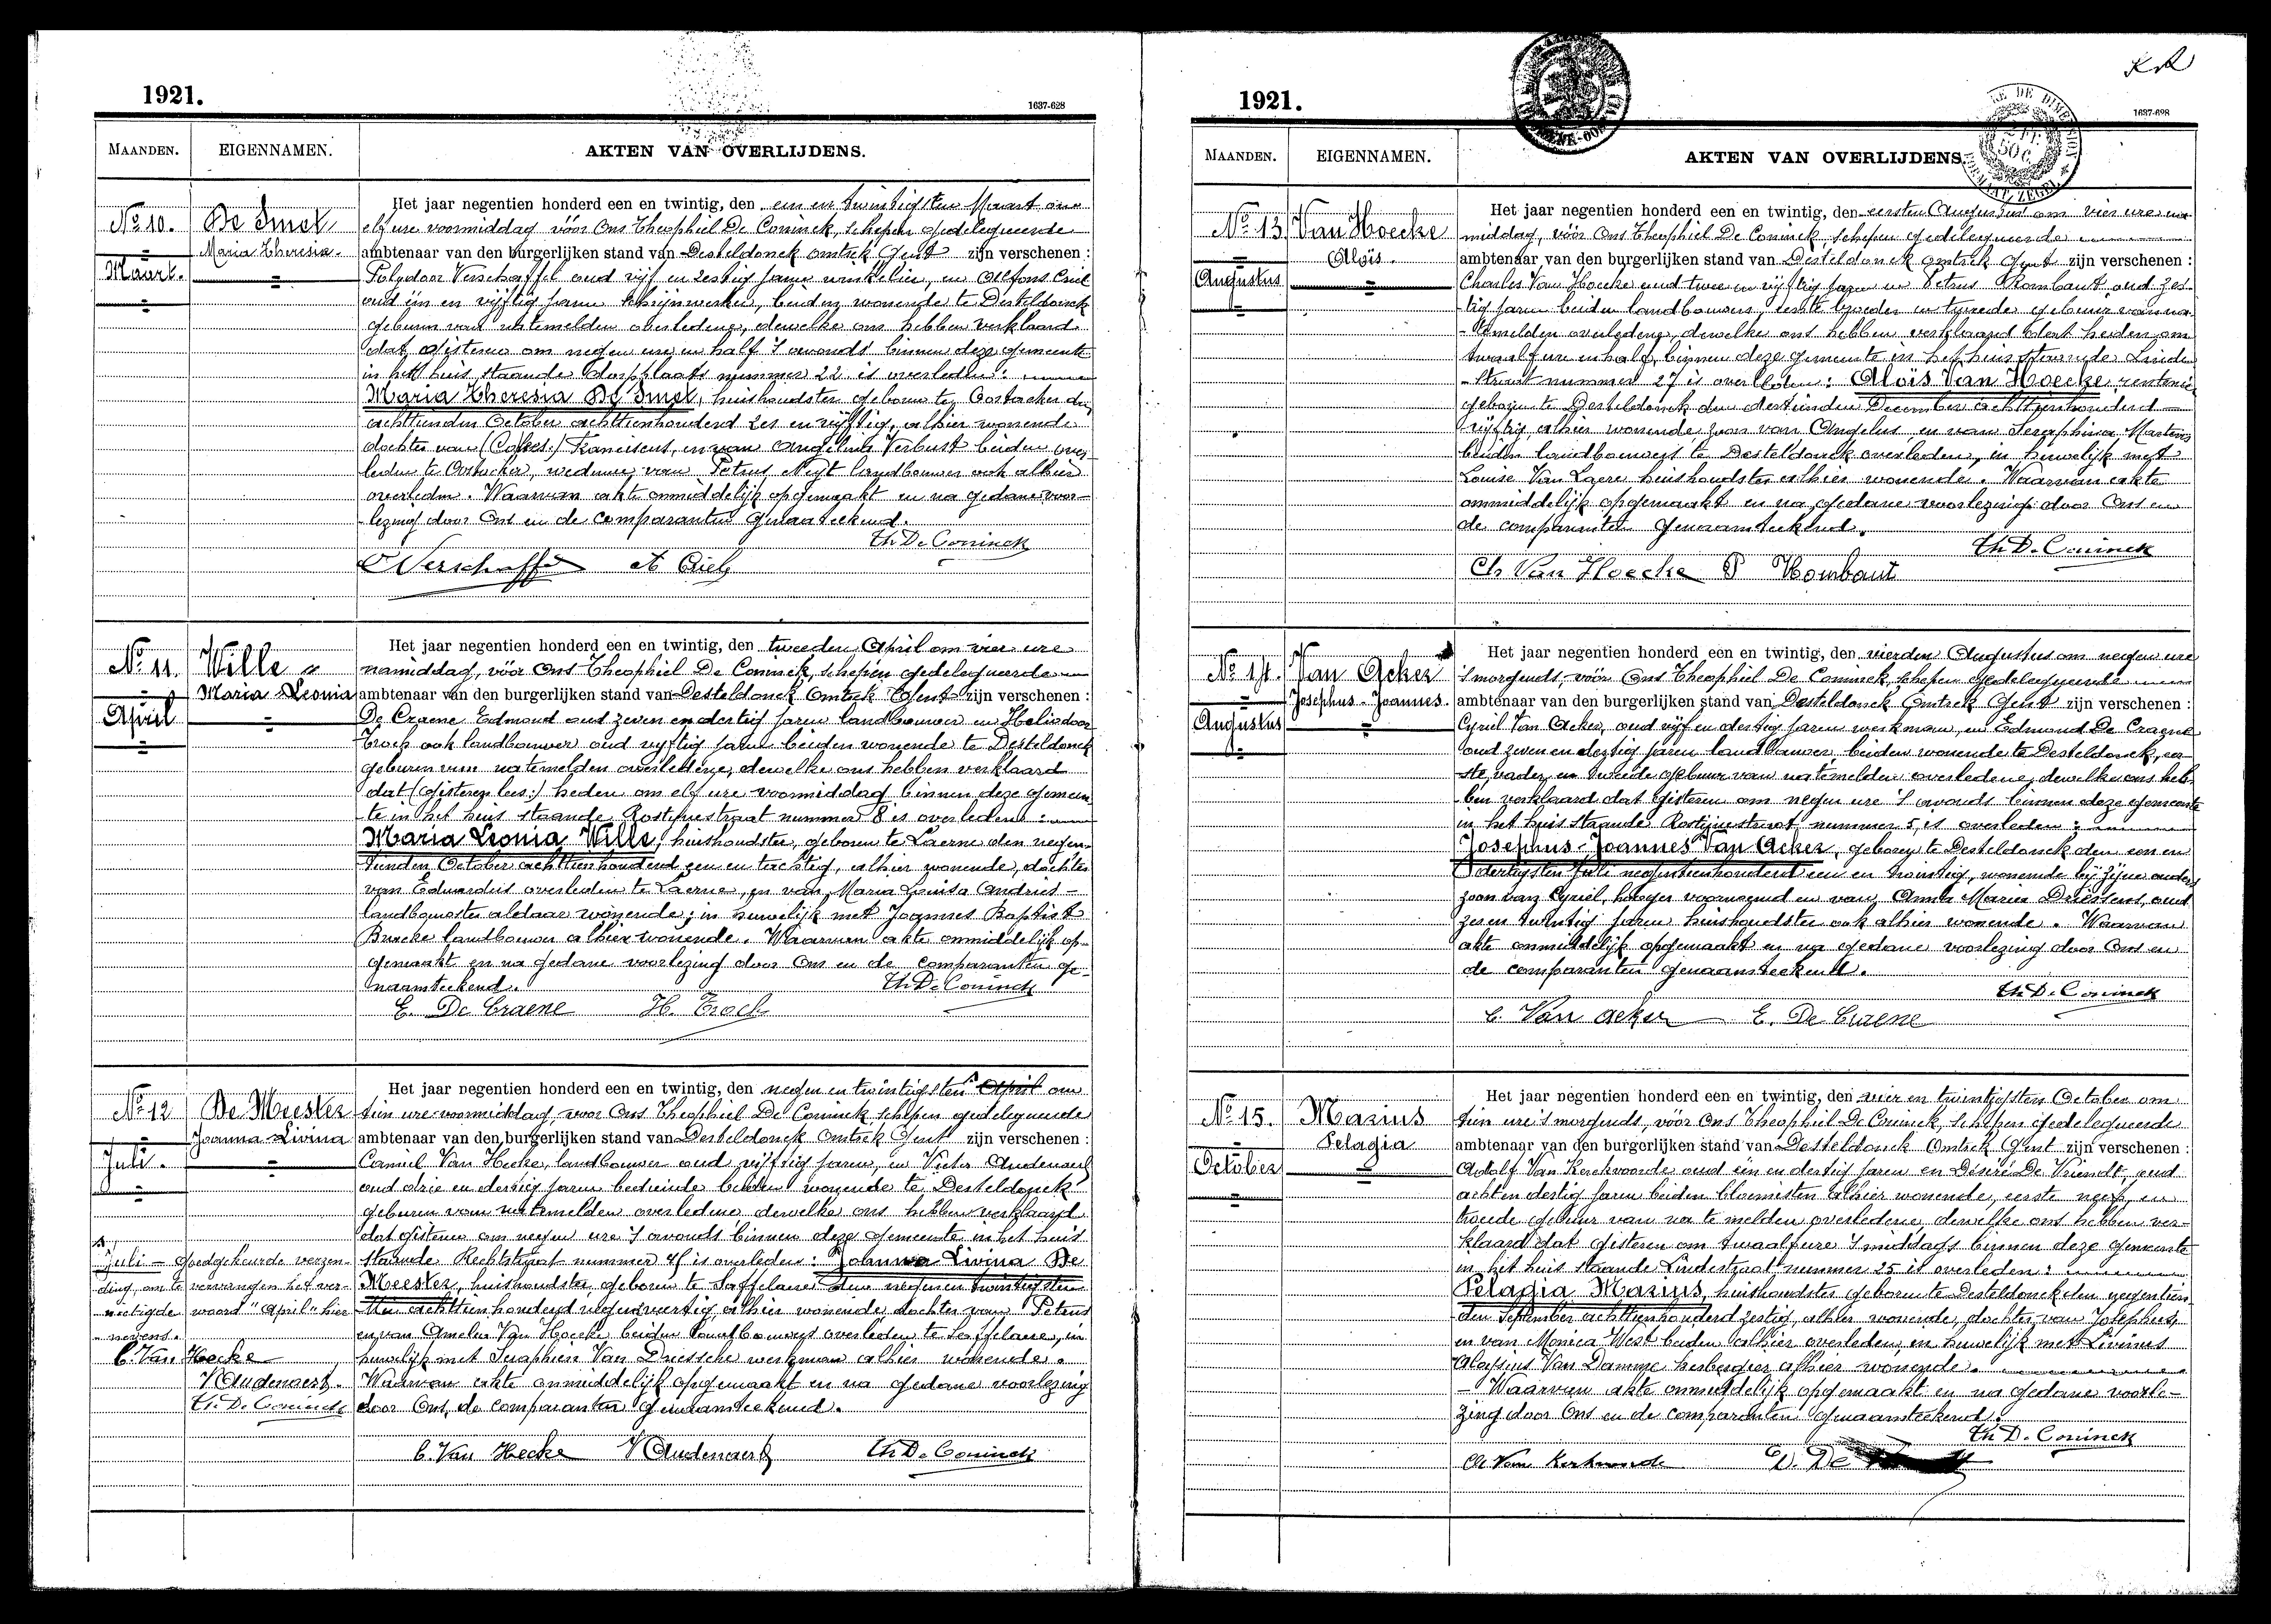 1921.
1637-628
MAANDEN.
EIGENNAMEN.
AKTEN VAN OVERLIJDENS.
No 10.
Maart.
De Smet
Maria Theresia.
Het jaar negentien honderd een en twintig, den een en twintigsten Maart om
elf ure voormiddag vóór Ons Theophiel De Coninck, schepen gedelegueerde
ambtenaar van den burgerlijken stand van Desteldonck omtrek Gent zijn verschenen :
Polydoor Verschaffel oud vijf en zestig jaren winkelier, en Alfons Criel
oud één en vijftig jaren schrijnwerker, beiden wonende te Desteldonck
geburen van natemelden overledene, dewelke ons hebben verklaard
dat gisteren om negen ure en half 's avonds binnen deze gemeente
in het huis staande dorpplaats nummer 22 is overleden :
Maria Theresia De Smet, huishoudster geboren te Oostacker den
achttienden October achttienhonderd zes en vijftig, alhier wonende
dochter van Franciscus, en van Angelina Verbust beiden over-
leden te Oostacker, weduwe van Petrus Neyt landbouwer ook alhier
overleden. Waarvan akte onmiddelijk opgemaakt en na gedane voor-
lezing door Ons en de comparanten genaamteekend.
Th De Coninck
Verschaffel A Criel
No 11.
April
Wille
Maria Leonia
Het jaar negentien honderd een en twintig, den tweeden April om vier ure
namiddag, vóór Ons Theophiel De Coninck, schepen gedelegueerde
ambtenaar van den burgerlijken stand van Desteldonck Omtrek Gent zijn verschenen :
De Craene Edmond oud zeven en dertig jaren landbouwer en Heliodoor
Troch ook landbouwer oud vijftig jaren beiden wonende te Desteldonck
geburen van natemelden overledene, dewelke ons hebben verklaard
dat (gisteren lees:) heden om elf ure voormiddag binnen deze gemeen-
te in het huis staande Rostijnestraat nummer 8 is overleden :
Maria Leonia Wille, huishoudster, geboren te Laerne den negen-
tienden October achttienhonderd een en tachtig, alhier wonende, dochter
van Eduardus overleden te Laerne, en van Maria Louisa Andries
landbouwster aldaar wonende; in huwelijk met Joannes Baptist
Buucke landbouwer alhier wonende. Waarvan akte onmiddelijk op-
gemaakt en na gedane voorlezing door Ons en de comparanten ge-
naamteekend.
Th De Coninck
E. De Craene H. Troch
No 12
Juli.
De Meester
Joanna Livina
Het jaar negentien honderd een en twintig, den negen en twintigsten April om
tien ure voormiddag, voor Ons Theophiel De Coninck, schepen gedelegueerde
ambtenaar van den burgerlijken stand van Desteldonck Omtrek Gent zijn verschenen :
Camiel Van Hecke, landbouwer oud vijftig jaren, en Victor Audenaert
oud drie en dertig jaren bediende beiden wonende te Desteldonck
geburen van natemelden overledene dewelke ons hebben verklaard
dat gisteren om negen ure 's avonds binnen deze gemeente in het huis
staande Rechtstraat nummer 4 is overleden : Johanna Livina De
Meester, huishoudster, geboren te Saffelaere den negen en twintigsten
achttienhonderd negenenveertig alhier wonende dochter van Petrus
en van Amelia Van Hoecke beiden landbouwers overleden te Saffelaere, in
huwelijk met Seraphien Van Driessche werkman alhier wonende.
Waarvan akte onmiddelijk opgemaakt en na gedane voorlezing
door Ons, de comparanten genaamteekend.
C. Van Hecke V Audenaert Th De Coninck
Juli - goedgekeurde verzen-
ding, om te vervangen het ver-
nietigde woord "April" hier
nevens.
C. Van Hecke
V Audenaert.
Th. De Coninck
1921.
1637-628
MAANDEN.
EIGENNAMEN.
AKTEN VAN OVERLIJDENS.
No 13
Augustus
Van Hoecke
Aloïs.
Het jaar negentien honderd een en twintig, den eersten Augustus om vier ure na-
middag, vóór Ons Theophiel De Coninck, schepen gedelegueerde
ambtenaar van den burgerlijken stand van Desteldonck omtrek Gent zijn verschenen :
Charles Van Hoecke oud twee en vijftig jaren en Petrus Rombaut oud zes-
tig jaren beiden landbouwers, eerste broeder en tweede gebuur van na-
temelden overledene, dewelke ons hebben verklaard dat heden om
twaalf ure en half, binnen deze gemeente in het huis staande Linde-
straat nummer 27 is overleden : Aloïs Van Hoecke, rentenier
geboren te Desteldonck den dertienden December achttienhonderd
vijftig, alhier wonende zoon van Angelus, en van Seraphina Martens
beiden landbouwers te Desteldonck overleden, in huwelijk met
Louise Van Laere huishoudster alhier wonende. Waarvan akte
onmiddelijk opgemaakt en na gedane voorlezing door Ons en
de comparanten genaamteekend.
Th D. Coninck
Ch Van Hoecke P Rombaut
No 14.
Augustus
Van Acker
Josephus-Joannes.
Het jaar negentien honderd een en twintig, den vierden Augustus om negen ure
's morgends, vóór Ons Theophiel De Coninck, schepen gedelegueerde
ambtenaar van den burgerlijken stand van Desteldonck Omtrek Gent zijn verschenen :
Cyriel Van Acker, oud vijf en dertig jaren werkman, en Edmond De Craene
oud zeven en dertig jaren landbouwer, beiden wonende te Desteldonck, eer-
ste vader, en tweede gebuur van natemelden overledene, dewelke ons heb-
ben verklaard dat gisteren om negen ure 's avonds binnen deze gemeente
in het huis staande Rostijnestraat nummer 5, is overleden :
Josephus-Joannes Van Acker, geboren te Desteldonck den een en
dertigsten Juli negentienhonderd een en twintig, wonende bij zijne ouders
zoon van Cyriel, hooger voornoemd en van Anna Maria Driessens, oud
zes en twintig jaren huishoudster ook alhier wonende. Waarvan
akte onmiddelijk opgemaakt en na gedane voorlezing door Ons en
de comparanten genaamteekend.
Th D. Coninck
C. Van Acker E. De Craene
No 15.
October
Marius
Pelagia
Het jaar negentien honderd een en twintig, den vier en twintigsten October om
tien ure 's morgends, vóór Ons Theophiel De Coninck, schepen gedelegueerde
ambtenaar van den burgerlijken stand van Desteldonck Omtrek Gent zijn verschenen :
Adolf Van Kerckvoorde oud één en dertig jaren en Désiré De Vriendt, oud
acht en dertig jaren beiden bloemisten alhier wonende, eerste neef, en
tweede gebuur van na te melden overledene, dewelke ons hebben ver-
klaard dat gisteren om twaalf ure 's middags binnen deze gemeente
in het huis staande Lindestraat nummer 25 is overleden :
Pelagia Marius, huishoudster geboren te Desteldonck den negentien-
den September achttienhonderd zestig, alhier wonende, dochter van Josephus,
en van Monica West beiden alhier overleden, in huwelijk met Livinus
Aloysius Van Damme herbergier alhier wonende.
- Waarvan akte onmiddelijk opgemaakt en na gedane voorle-
zing door Ons en de comparanten genaamteekend.
Th D. Coninck
Van Kerkvoorde D. De